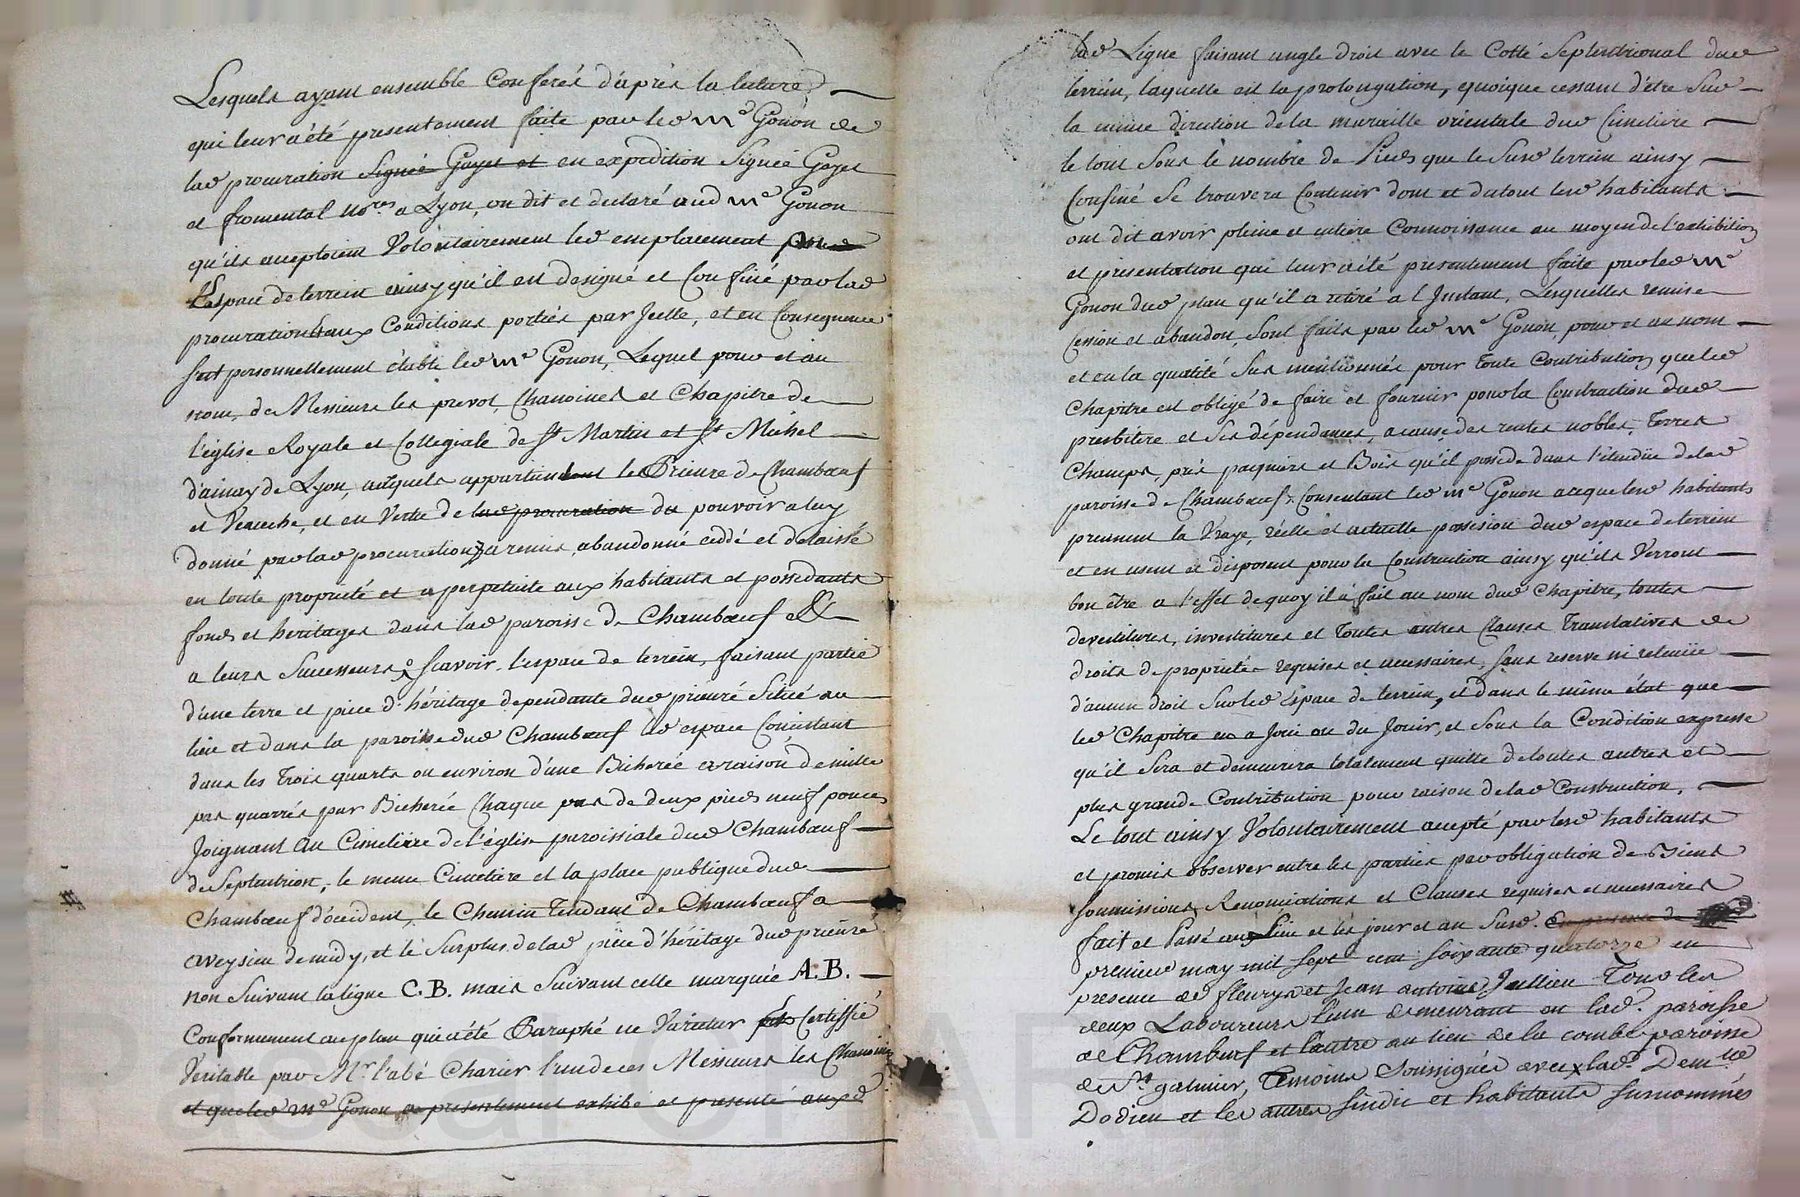 Lesquels ayant ensemble Conferés d'après la lecture
qui leur a été presentement faite par led mᵉ Gonon de
lad procuration Signée Gayet et en expedition Signée Gayet
et fromental noʳᵉˢ a Lyon, on dit et declaré aud mᵉ Gonon
qu'ils acceptoient Volontairement led emplacement
Espace de terrein ainsy qu'il est designé et Confiné par lad
procuration aux Conditions portées par Icelle, et en Consequence
s'est personnellement établi led mᵉ Gonon, Lequel pour et au
nom de Messieurs les prevot, Chanoines et Chapitre de
l'église Royale et Collegiale de Sᵗ Martin et Sᵗ Michel
d'ainay de Lyon, auxquels appartient le Prieuré de Chambœuf
et Veauche, et en Vertu de lad procuration du pouvoir a luy
donné par lad procuration a remis, abandonné cedé et delaissé
en toute proprieté et a perpetuité aux habitants et possedants
fonds et heritages dans lad paroisse de Chambœuf et
a leurs Successeurs Scavoir, l'espace de terrein, faisant partie
d'une terre et piece d'héritage dependante dud prieuré Situé au
lieu et dans la paroisse dud Chambœuf led espace Consistant
dans les Trois quarts ou environ d'une Bicherée a raison de mille
pas quarrés par Bicherée Chaque pas de deux pieds neuf pouces
Joignant au Cimetière de l'église paroissiale dud Chambœuf
de Septentrion, le meme Cimetiere et la place publique dud
Chambœuf d'occident, le Chemin Tendant de Chambœuf a
aveysieu de midy, et le Surplus de lad pièce d'héritage dud prieuré
non Suivant la ligne C.B. mais Suivant celle marquée A.B.
Conformement au plan qui a été Paraphé ne Varietur Certiffié
Veritable par Mʳ l'abé Charier l'un de ces Messieurs les Chanoines
et que led mᵉ Gonon a presentement exhibé et presenté auxd
lad Ligne faisant angle droit avec le Cotté Septentrional dud
terrein, laquelle est la prolongation, quoique cessant d'être Sur
la même direction de la muraille orientale dud Cimetiere
le tout Sous le nombre de Pieds que le Susd terrein ainsy
Confiné Se trouvera Contenir dont et du tout lesd habitants
ont dit avoir pleine et entière Connoissance au moyen de l'exhibition
et presentation qui leur a été presentement faite par led mᵉ
Gonon dud plan qu'il a retiré a l'Instant, Lesquelles remise
Cession et abandon, Sont faits par led mᵉ Gonon, pour et au nom
et en la qualité Sus mentionnée pour Toute Contribution que led
Chapitre est obligé de faire et fournir pour la Construction dud
presbitere et Ses dépendances, a cause des rentes nobles, Terres
Champs, prés paquiers et Bois qu'il possede dans l'étendue de lad
paroisse de Chambœuf, Consentant led mᵉ Gonon a ce que lesd habitants
prennent la Vraye, réelle et actuelle possession dud espace de terrein
et en usent et disposent pour la Construction ainsy qu'ils Verront
bon être a l'effet de quoy il a fait au nom dud Chapitre, toutes
devestitures, investitures et Toutes autres Clauses Translatives de
droits de proprieté requises et necessaires, sans reserve ni retenüe
d'aucun droit Sur led Espace de terrein, et dans le même état que
led Chapitre en a Joui ou du Jouir, et Sous la Condition expresse
qu'il Sera et demeurera totalement quitte de toutes autres et
plus grande Contribution pour raison de lad Construction,
Le tout ainsy Volontairement accepté par lesd habitants
et promis observer entre les parties par obligation de Biens
soumissions Renonciations et Clauses requises et necessaires
fait et Passé aux lieu et les jour et an Susd. En presence de
premier may mil sept cent soixante quatorze en
presence de fleury et Jean antoine Jullien Tous les
deux Laboureurs l'un demeurant en lad. paroisse
de Chambœuf et l'autre au lieu de la combe paroisse
de Sᵗ galmier, Temoins Soussignés avec lad. Dem.ˡˡᵉ
Dodieu et les autres sindic et habitants surnommés